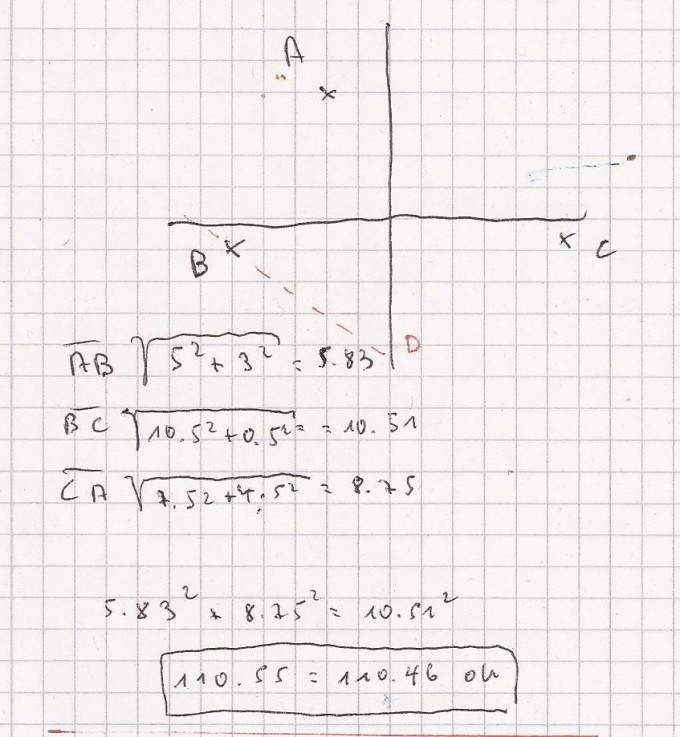 A
B
C
D
AB √5² + 3² = 5.83
BC √10.5² + 0.5² = = 10.51
CA √7.5² + 4.5² = 8.75
5.83² + 8.75² = 10.51²
110.55 = 110.46 ok